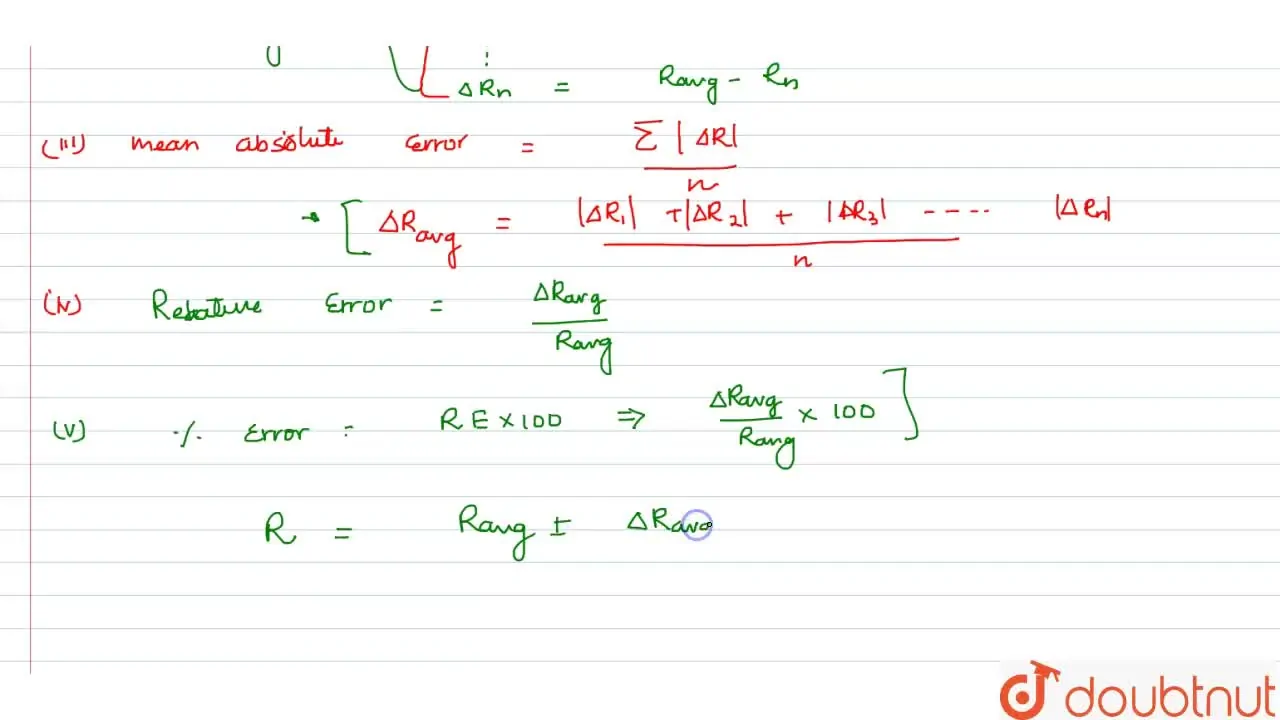 ΔRn = Ravg - Rn
(iii) mean absolute error = Σ |ΔR| / n
[ ΔRavg = |ΔR1| + |ΔR2| + |ΔR3| ---- |ΔRn| / n
(iv) Relative Error = ΔRavg / Ravg
(v) % Error : R E × 100 ⇒ ΔRavg / Ravg × 100 ]
R = Ravg ± ΔRavg
doubtnut